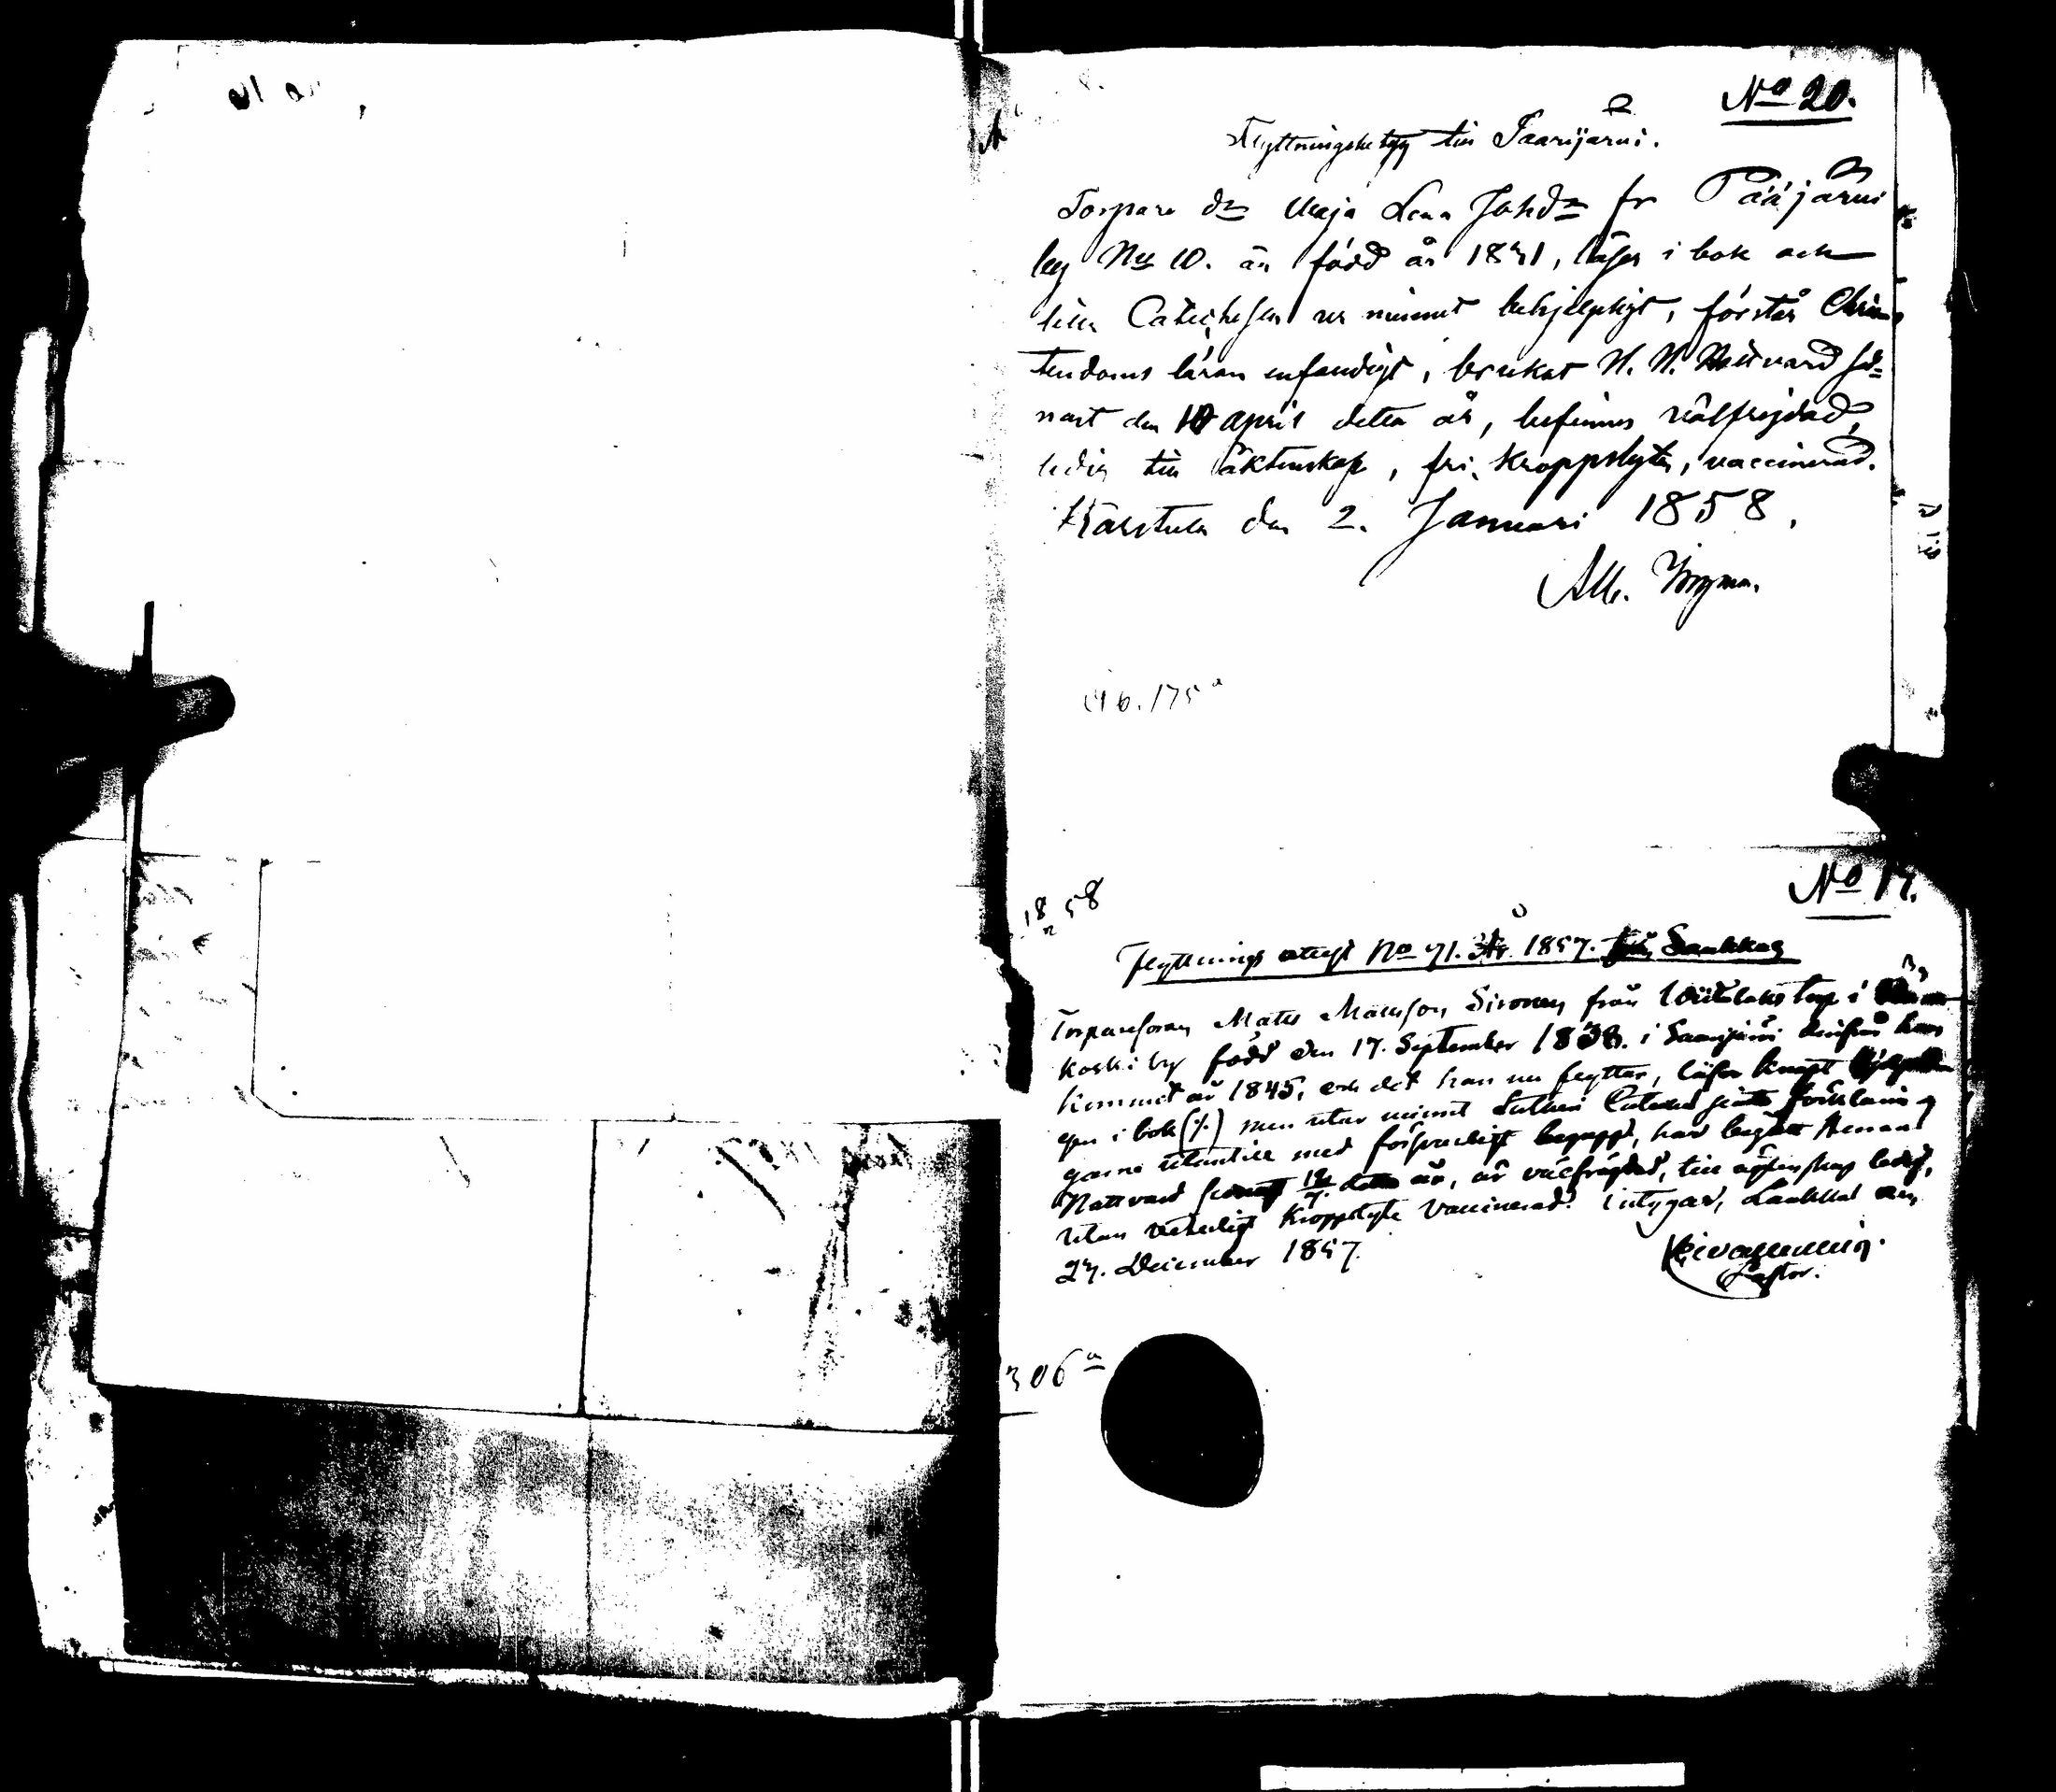 No 20.
Flyttningsbetyg till Saarijärvi.
Torpare dr Maja Lena Johdr fr Pääjärvi
by No 10. är född år 1831, läser i bok och
lilla Catechesen ur minnet behjelpligt, förstår Chris
tendoms läran enfaldigt, brukat H. H. Nattvard sed=
nast den 10 april detta år, befinnes välfrejdad,
ledig till äktenskap, fri kroppslyte, vaccinerad.
Karstula den 2. Januari 1858.
Alb.
175a
No 17.
1858
Flyttnings attest No 71. 1857. från Laukkas
Torparesonen Mats Matsson Sironen från torp i
koski by född den 17. September 1838. i Saarijärvi derifrån han
kommit år 1845, och dit han nu flyttar, läser knapt
gen i bok (%) men utan minnet Lutheri förklaring
garne utantill med begrepp, har begått Herrans
Nattvard sednast detta år, är välfrejdad, till äktenskap ledig,
utan kroppslyte vaccinerad. intygar, Laukkas den
27. December 1857.
Pastor.
306a